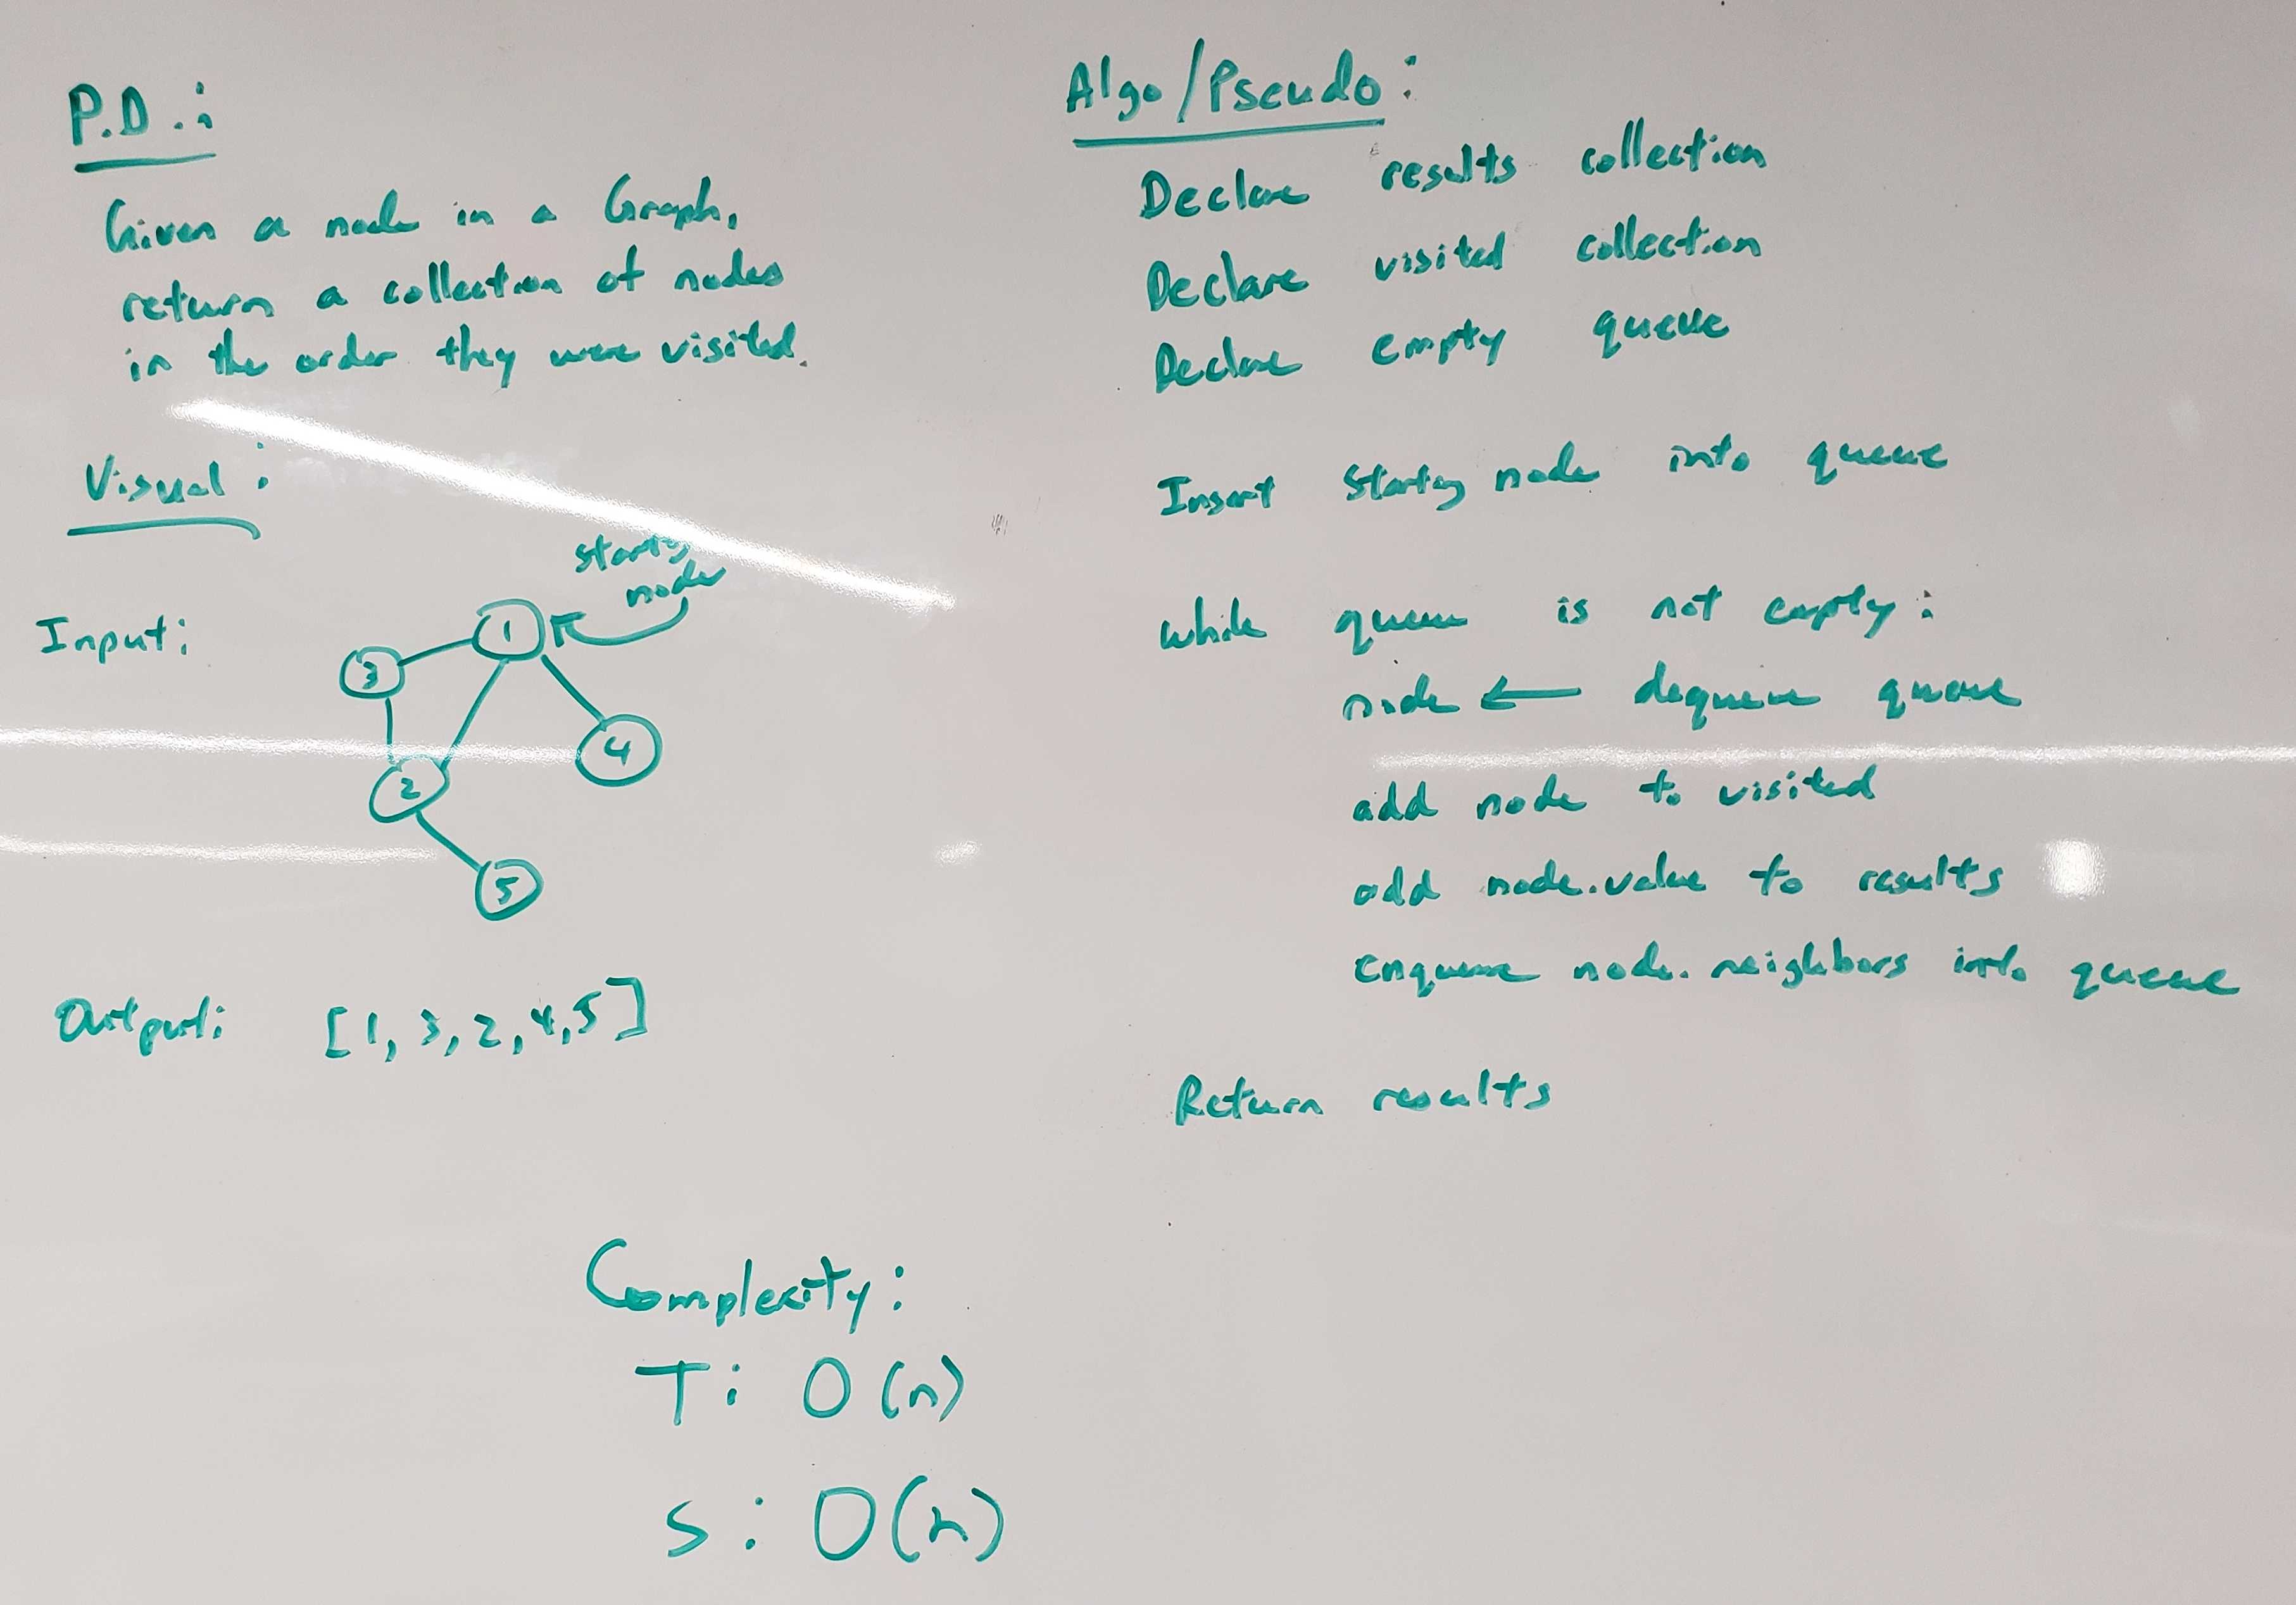 P.D.:
Given a node in a Graph,
return a collection of nodes
in the order they were visited.
Visual:
Input:
starting
node
1
3
2
4
5
Output: [1, 3, 2, 4, 5]
Complexity:
T: O(n)
S: O(n)
Algo/Pseudo:
Declare results collection
Declare visited collection
Declare empty queue
Insert starting node into queue
while queue is not empty:
node ← dequeue queue
add node to visited
add node.value to results
enqueue node.neighbors into queue
Return results